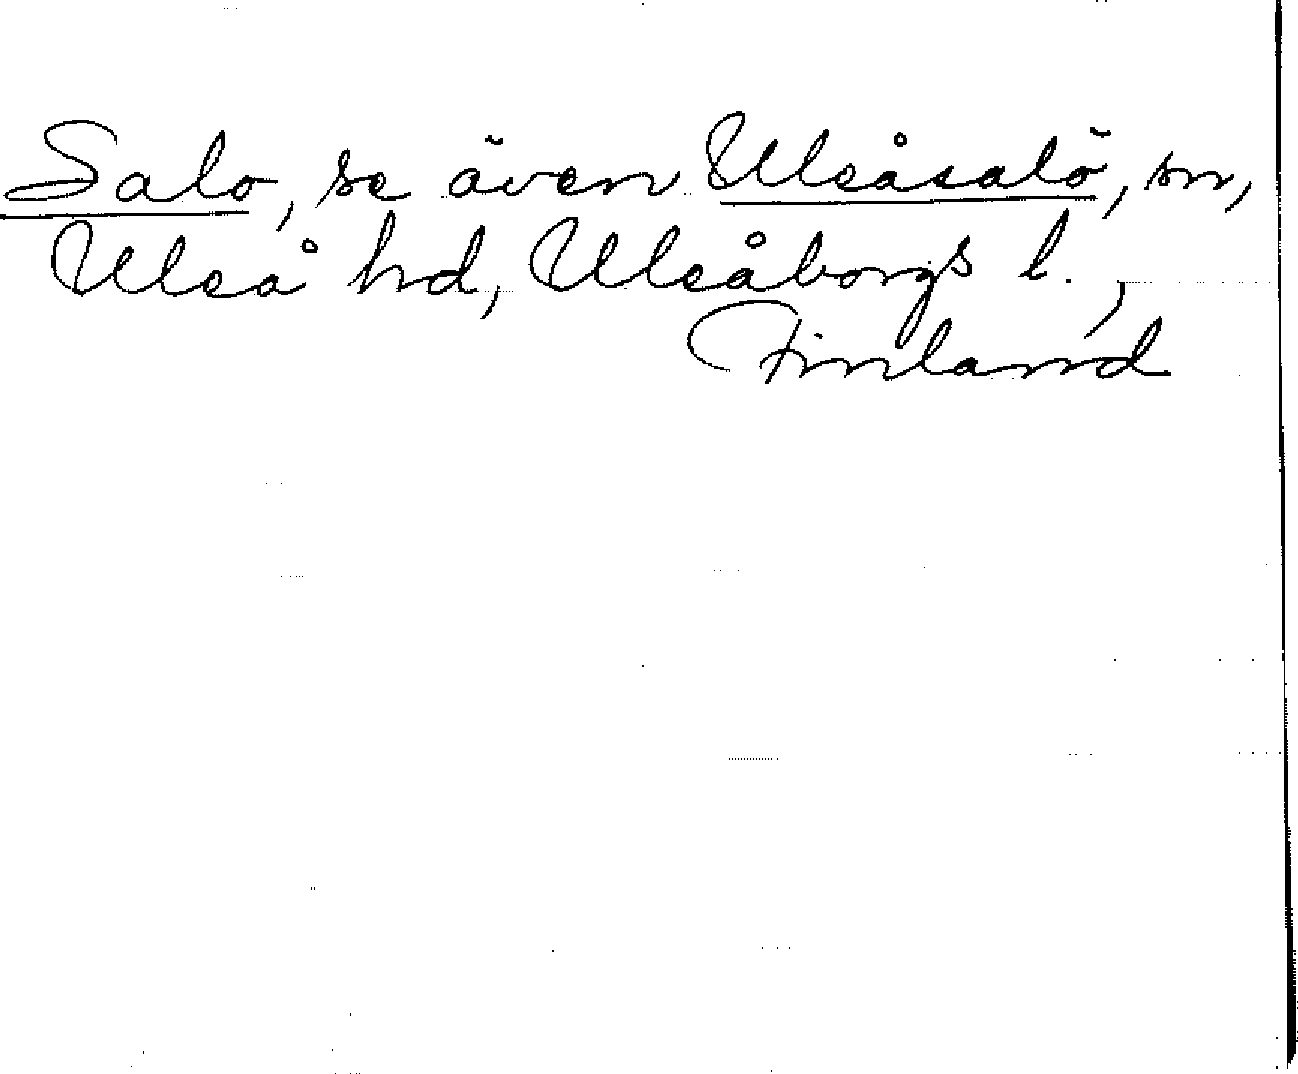 Salo, se även Uleåsalö, sn,
Uleå hd, Uleåborgs l.,
Finland